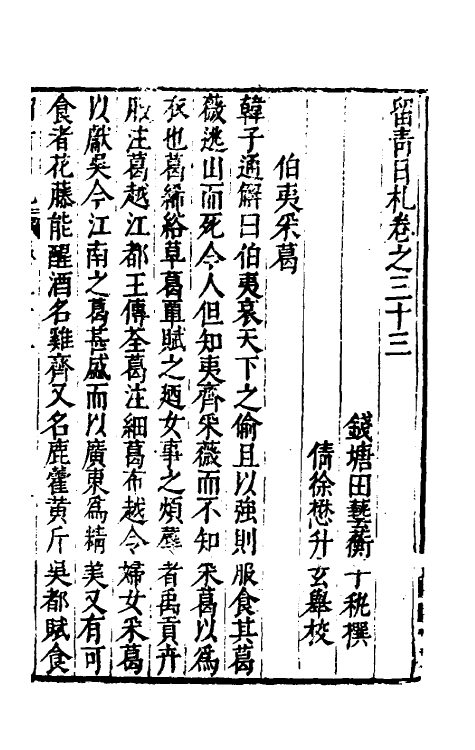 留青日札卷之三十三
錢塘田藝蘅子秇撰
倩徐懋升玄舉校
伯夷采葛
韓子通解曰伯夷哀天下之偷且以強則服食其葛
薇逃山而死今人但知夷齊采薇而不知采葛以為
衣也葛絺綌草葛覃賦之廼女事之煩蓐者禹貢卉
服注葛越江都王傳荃葛注細葛布越令婦女采葛
以獻吳今江南之葛甚盛而以廣東為精美又有可
食者花藤能醒酒名雞齊又名鹿藿黃斤吳都賦食